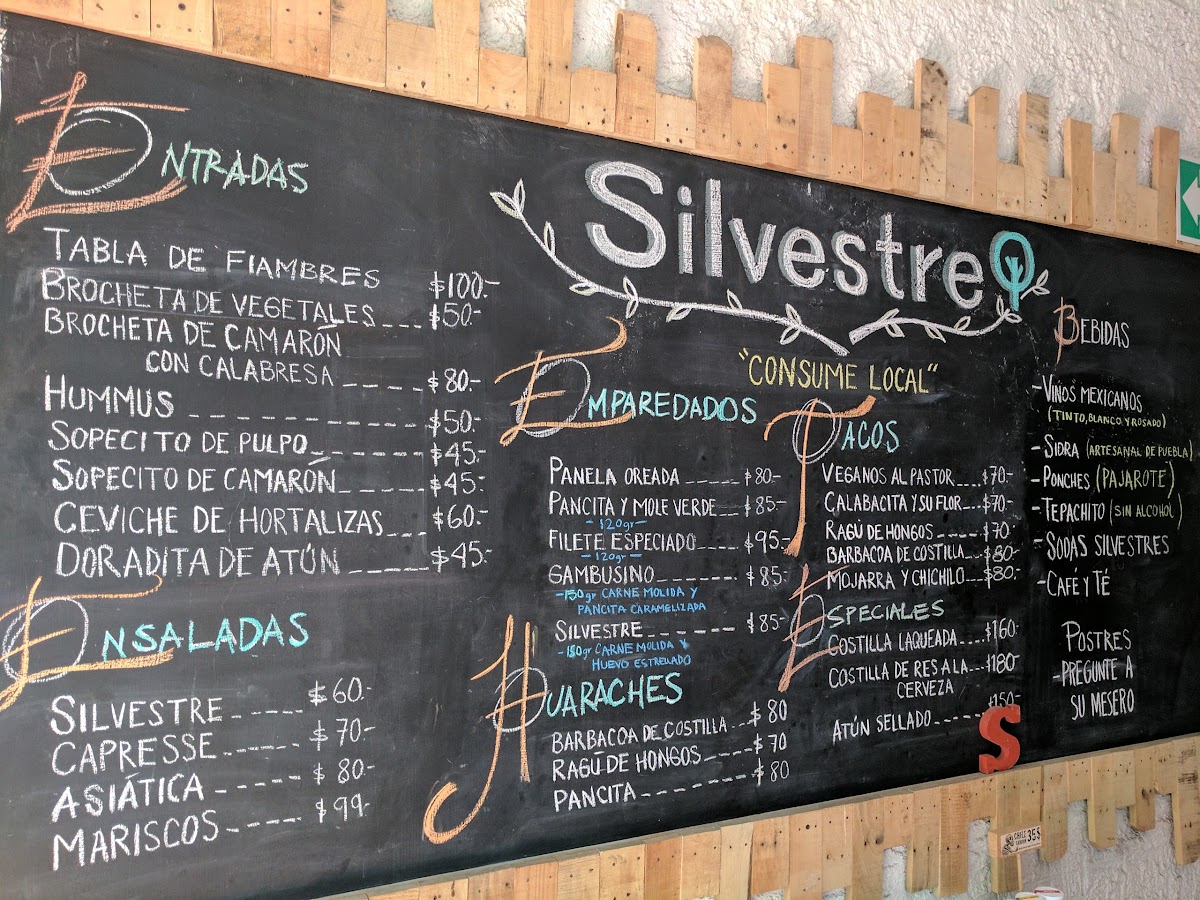 ENTRADAS
TABLA DE FIAMBRES $100.-
BROCHETA DE VEGETALES___$50.-
BROCHETA DE CAMARÓN
CON CALABRESA _____$80.-
HUMMUS _________$50.-
SOPECITO DE PULPO______$45.-
SOPECITO DE CAMARÓN_____$45.-
CEVICHE DE HORTALIZAS___$60.-
DORADITA DE ATÚN _____$45.-
ENSALADAS
SILVESTRE ____ $60.-
CAPRESSE _____ $70.-
ASIÁTICA _____ $80.-
MARISCOS_____ $99.-
Silvestre
"CONSUME LOCAL"
EMPAREDADOS
PANELA OREADA _____ $80.-
PANCITA Y MOLE VERDE __$85.-
-120gr-
FILETE ESPECIADO____$95.-
-120gr-
GAMBUSINO_______$85.-
-150gr CARNE MOLIDA Y
PANCITA CARAMELIZADA
SILVESTRE _______$85.-
-150gr CARNE MOLIDA Y
HUEVO ESTRELLADO
HUARACHES
BARBACOA DE COSTILLA __$80
RAGÚ DE HONGOS____$70
PANCITA_________$80
TACOS
VEGANOS AL PASTOR___$70.-
CALABACITA Y SU FLOR__$70.-
RAGÚ DE HONGOS ____$70
BARBACOA DE COSTILLA__$80.-
MOJARRA Y CHICHILO__$80.-
ESPECIALES
COSTILLA LAQUEADA___$160.-
COSTILLA DE RES A LA __$180.-
CERVEZA
ATÚN SELLADO______150.-
S
BEBIDAS
-VINOS MEXICANOS
(TINTO, BLANCO Y ROSADO)
-SIDRA (ARTESANAL DE PUEBLA)
-PONCHES (PAJAROTE)
-TEPACHITO (SIN ALCOHOL)
-SODAS SILVESTRES
-CAFÉ Y TÉ
POSTRES
-PREGUNTE A
SU MESERO
35$